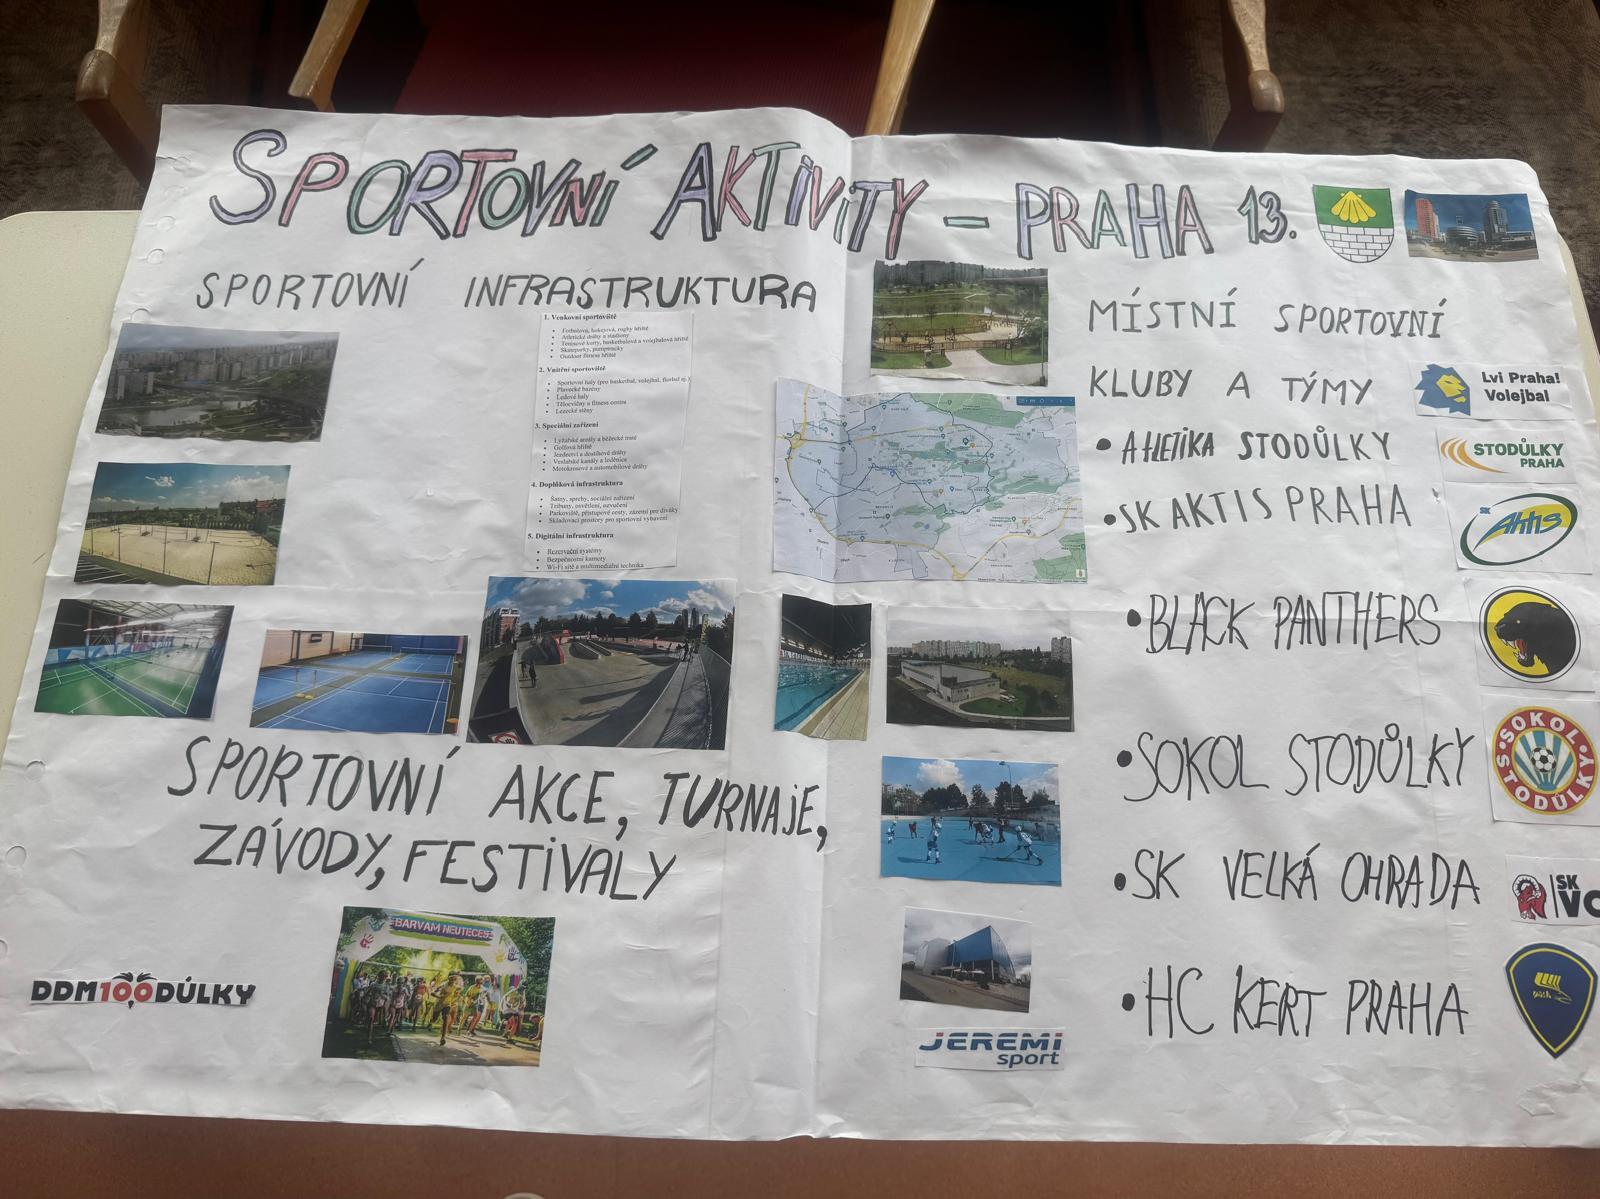 SPORTOVNÍ AKTIVITY – PRAHA 13.
SPORTOVNÍ INFRASTRUKTURA
1. Venkovní sportoviště
• Fotbalová, hokejová, rugby hřiště
• Atletické dráhy a stadiony
• Tenisové kurty, basketbalová a volejbalová hřiště
• Skateparky, pumptracky
• Outdoor fitness hřiště
2. Vnitřní sportoviště
• Sportovní haly (pro basketbal, volejbal, florbal aj.)
• Plavecké bazény
• Ledové haly
• Tělocvičny a fitness centra
• Lezecké stěny
3. Speciální zařízení
• Lyžařské areály a běžecké tratě
• Golfová hřiště
• Jezdectví a dostihové dráhy
• Veslařské kanály a loděnice
• Motokrosové a automobilové dráhy
4. Doplňková infrastruktura
• Šatny, sprchy, sociální zařízení
• Tribuny, osvětlení, ozvučení
• Parkoviště, přístupové cesty, zázemí pro diváky
• Skladovací prostory pro sportovní vybavení
5. Digitální infrastruktura
• Rezervační systémy
• Bezpečnostní kamery
• Wi-Fi sítě a multimediální technika
SPORTOVNÍ AKCE, TURNAJE,
ZÁVODY, FESTIVALY
BARVÁM NEUTEČEŠ
DDM100DŮLKY
MÍSTNÍ SPORTOVNÍ
KLUBY A TÝMY
Lvi Praha!
Volejbal
• ATLETIKA STODŮLKY
STODŮLKY
PRAHA
• SK AKTIS PRAHA
SK
Aktis
• BLACK PANTHERS
• SOKOL STODŮLKY
SOKOL • STODŮLKY •
• SK VELKÁ OHRADA
SK
VO
• HC KERT PRAHA
JEREMI
sport